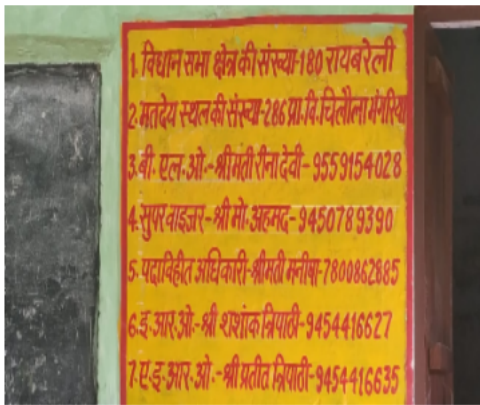 1. विधान सभा क्षेत्र की संख्या-180 रायबरेली
2. मतदेय स्थल की संख्या-286 प्रा. वि. चिलौला मंगरिया
3. बी. एल. ओ.-श्रीमती रीना देवी-9559154028
4. सुपरवाइजर-श्री मो. अहमद-9450789390
5. पदाविहीत अधिकारी-श्रीमती मनीषा-7800862885
6. ई. आर. ओ.-श्री शशांक त्रिपाठी-9454416627
7. ए. इ. आर. ओ.-श्री प्रतीत त्रिपाठी-9454416635